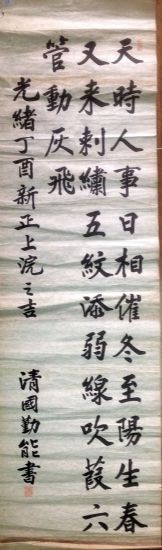 天時人事日相催冬至陽生春
又来刺繡五紋添弱線吹葭六
管動灰飛
光緒丁酉新正上浣之吉
清國勤能書